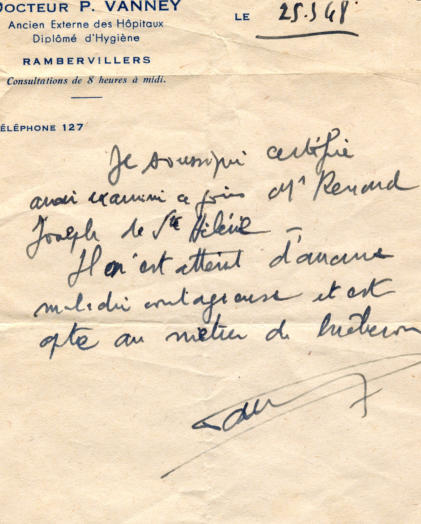 DOCTEUR P. VANNEY
Ancien Externe des Hôpitaux
Diplômé d'Hygiène
RAMBERVILLERS
Consultations de 8 heures à midi.
TÉLÉPHONE 127
LE 25.5 48
Je soussigné certifie
avoir examiné ce jour Mr Renard
Joseph de Ste Hélène -
Il n'est atteint d'aucune
maladie contagieuse et est
apte au métier de